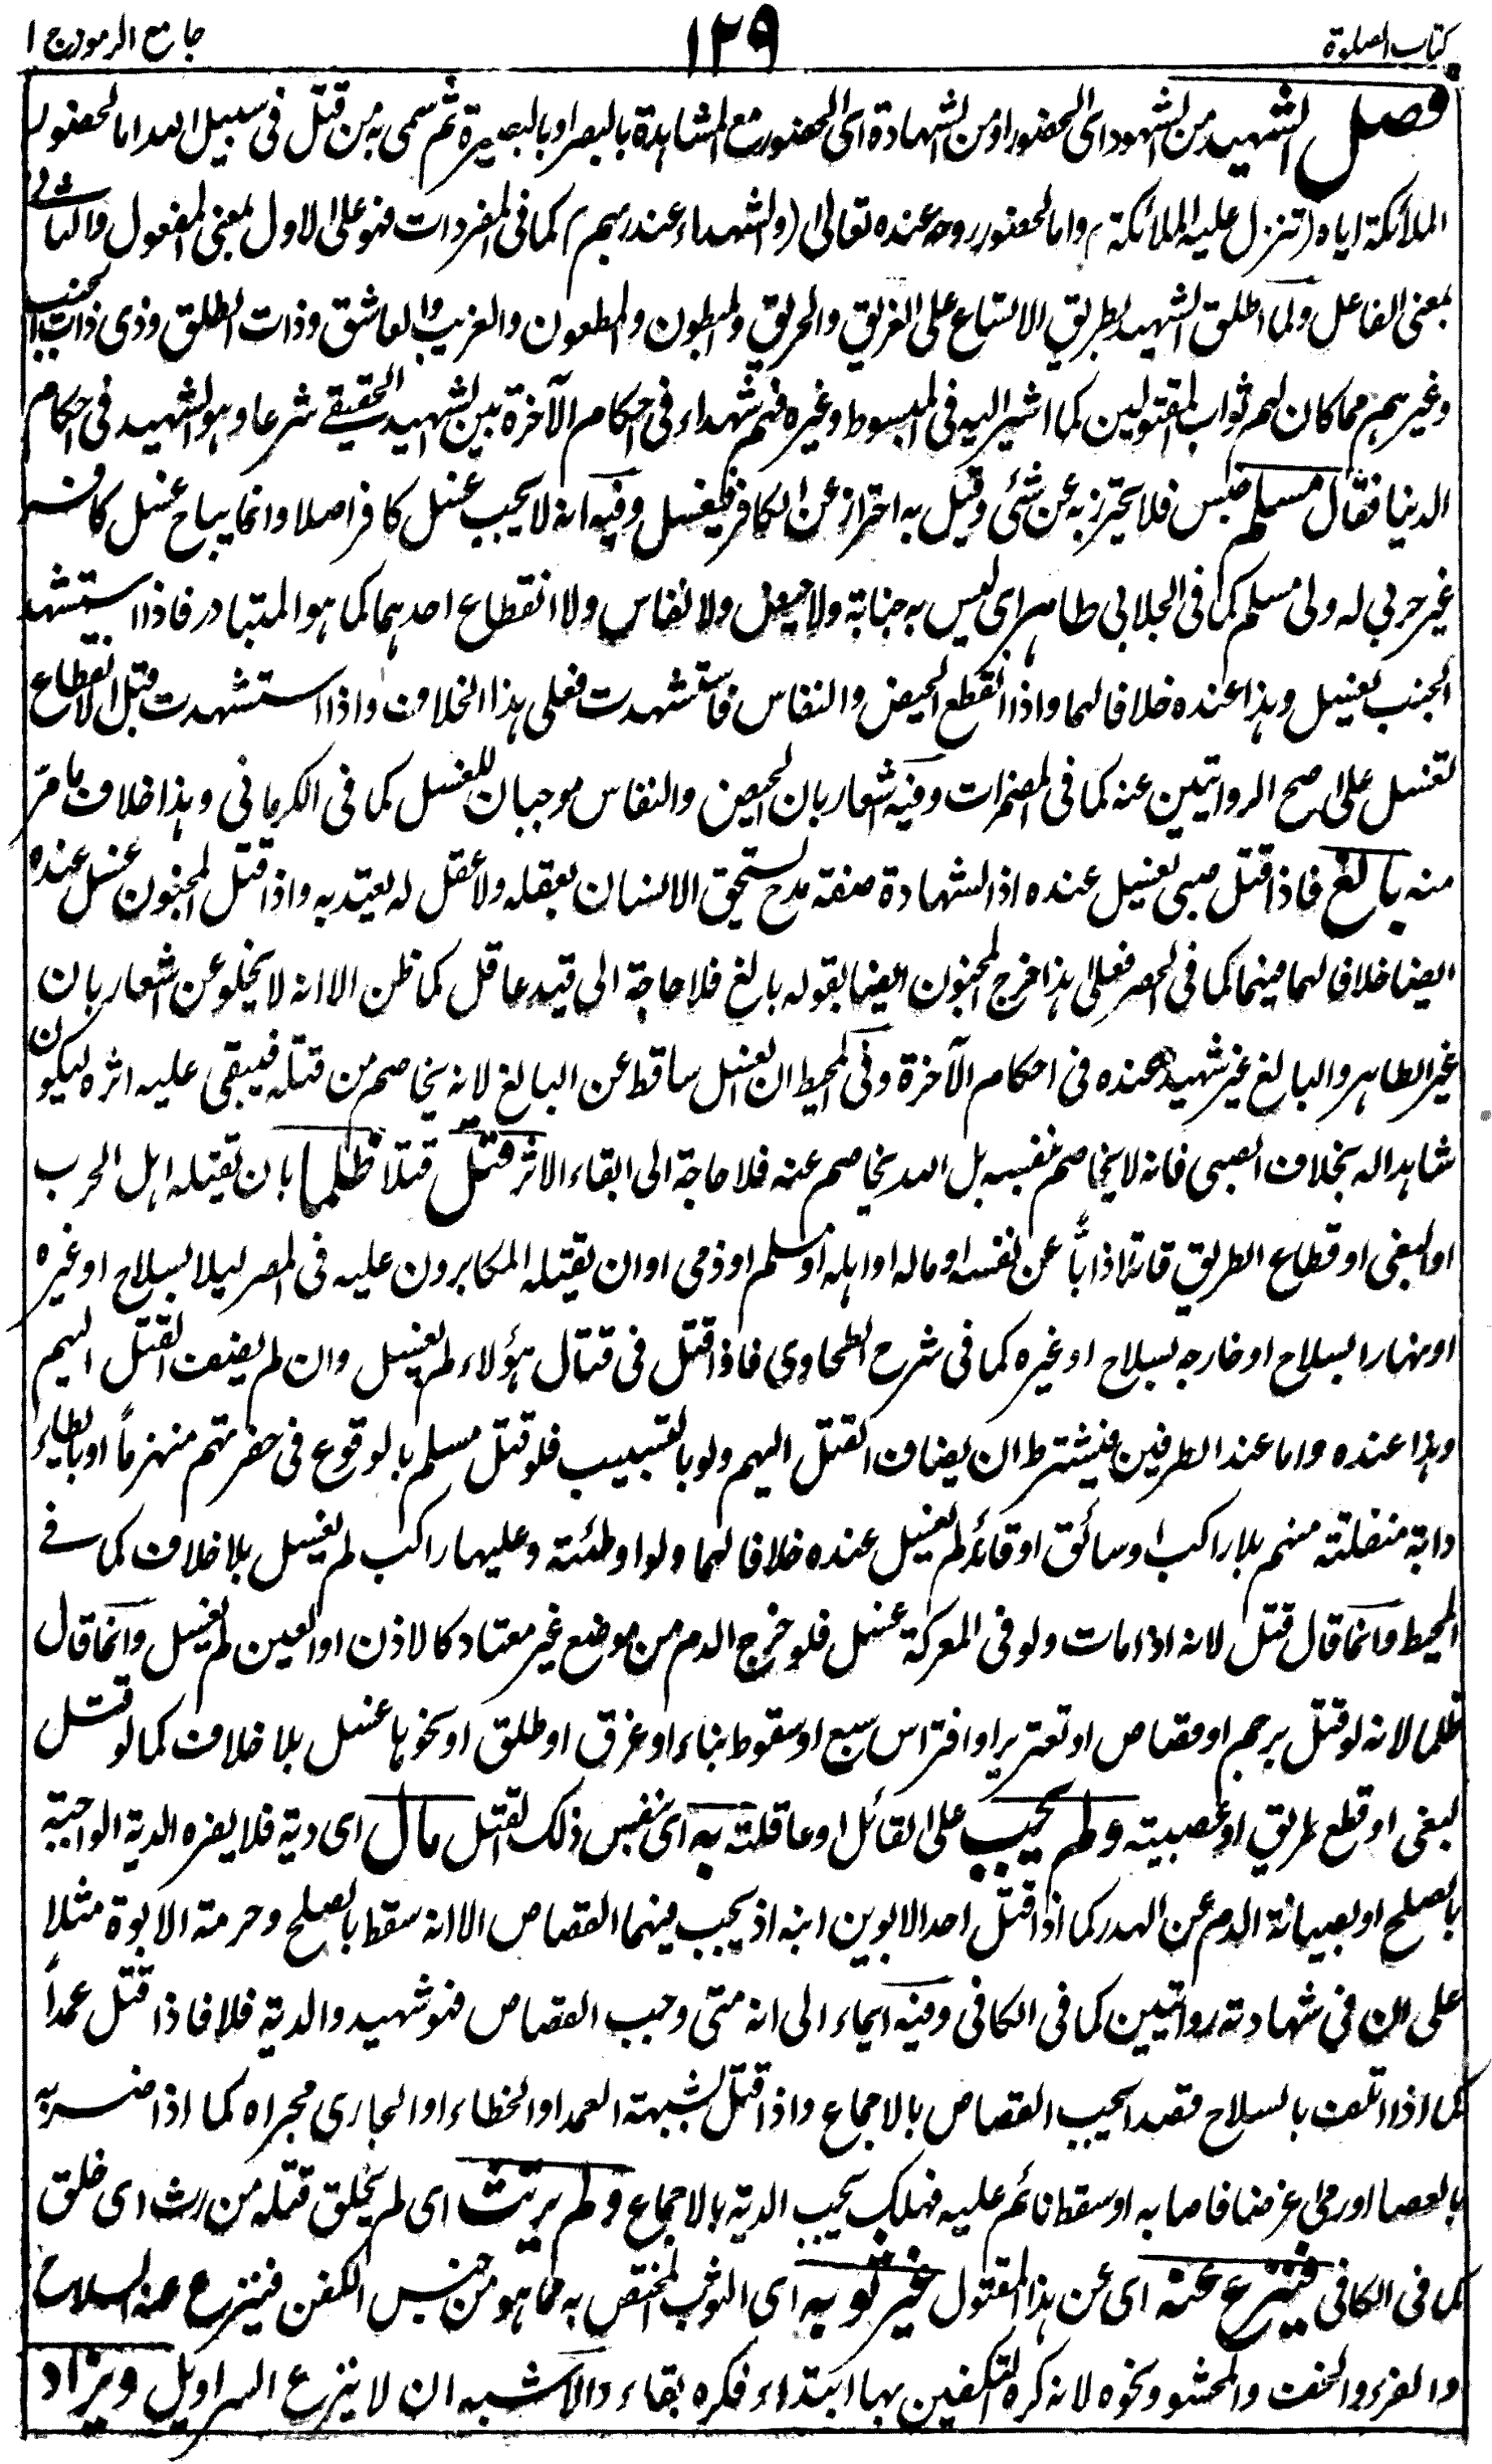 كتاب الصلوة
١٢٩
جامع الرموز ج ١
فصل الشهيد من الشهود اى الحضور او من الشهادة اى الحضور مع المشاهدة بالبصر او بالبصيرة ثم سمى به من قتل فى سبيل الله اما لحضور
الملائكة اياه (تتنزل عليه الملائكة) واما لحضور روحه عنده تعالى (والشهداء عند ربهم) كما فى المفردات فهو على الاول بمعنى المفعول والثانى
بمعنى الفاعل ولما اطلق الشهيد بطريق الاتساع على الغريق والحريق والمبطون والمطعون والغريب والعاشق وذات الطلق وذى ذات الجنب
وغيرهم مما كان لهم ثواب المقتولين كما اشير اليه فى المبسوط وغيره فهم شهداء فى احكام الآخرة بين الشهيد الحقيقى شرعا وهو الشهيد فى احكام
الدنيا فقال مسلم جنس فلا يحترز به عن شئ وقيل به احتراز عن الكافر فيغسل وفيه انه لا يجب غسل كافر اصلا وانما يباح غسل كافر
غير حربى له ولى مسلم كما فى الجلابى طاهر اى ليس به جنابة ولا حيض ولا نفاس ولا انقطاع احدهما كما هو المتبادر فاذا استشهد
الجنب يغسل وهذا عنده خلافا لهما واذا انقطع الحيض والنفاس فاستشهدت فعلى هذا الخلاف واذا استشهدت قبل الانقطاع
تغسل على اصح الروايتين عنه كما فى المضمرات وفيه اشعار بان الحيض والنفاس موجبان للغسل كما فى الكرمانى وهذا خلاف ما مرّ
منه بالغ فاذا قتل صبى يغسل عنده اذ الشهادة صفة مدح يستحق الانسان بعقله ولا عقل له يعتد به واذا قتل المجنون غسل عنده
ايضا خلافا لهما فيهما كما فى الحصر فعلى هذا خرج المجنون ايضا بقوله بالغ فلا حاجة الى قيد عاقل كما ظن الا انه لا يخلو عن اشعار بان
غير الطاهر والبالغ غير شهيد عنده فى احكام الآخرة وفى المحيط ان الغسل ساقط عن البالغ لانه يخاصم من قتله فيبقى عليه اثره ليكون
شاهدا له بخلاف الصبى فانه لا يخاصم بنفسه بل الله يخاصم عنه فلا حاجة الى ابقاء الاثر قتل قتلا ظلما بان يقتله اهل الحرب
او البغى او قطاع الطريق قاتلا ذابًّا عن نفسه او ماله او اهله او مسلم او ذمى او ان يقتله المكابرون عليه فى المصر ليلا بسلاح او غيره
او نهارا بسلاح او خارجه بسلاح او غيره كما فى شرح الطحاوى فاذا قتل فى قتال هؤلاء لم يغسل وان لم يضف القتل اليهم
وهذا عنده واما عند الطرفين فيشترط ان يضاف القتل اليهم ولو بالتسبيب فلو قتل مسلم بالوقوع فى حفرتهم منهزماً او بايطاء
دابة منفلتة منهم بلا راكب او سائق او قائد لم يغسل عنده خلافا لهما ولو اوطئته وعليها راكب لم يغسل بلا خلاف كما فى
المحيط وانما قال قتل لانه اذا مات ولو فى المعركة غسل فلو خرج الدم من موضع غير معتاد كالاذن او العين لم يغسل وانما قال
ظلما لانه لو قتل برجم او قصاص او تعزير او افتراس سبع او سقوط بناء او غرق او طلق او نحوها غسل بلا خلاف كما لو قتل
لبغى او قطع طريق او عصبيته ولم يجب على القاتل او عاقلته به اى بنفس ذلك القتل مال اى دية فلا يضره الدية الواجبة
بالصلح او بصيانة الدم عن الهدر كما اذا قتل احد الابوين ابنه اذ يجب فيهما القصاص الا انه سقط بالصلح وحرمة الابوة مثلا
على ان فى شهادته روايتين كما فى الكافى وفيه ايماء الى انه متى وجب القصاص فهو شهيد والدية فلا فاذا قتل عمداً
كما اذا اتلف بالسلاح قصدا يجب القصاص بالاجماع واذا قتل بشبهة العمد او الخطاء او الجارى مجراه كما اذا ضربه
بالعصا او رمى غرضا فاصابه او سقط نائم عليه فهلك يجب الدية بالاجماع ولم يرتث اى لم يخلق قتله من رث اى خلق
كما فى الكافى فينزع عنه اى عن هذا المقتول غير ثوبه اى الثوب المختص به مما هو من جنس الكفن فينزع عنه السلاح
والفرو والخف والمحشو ونحوه لانه كره التكفين بها ابتداء فكره بقاء والاشبه ان لا ينزع السراويل ويزاد